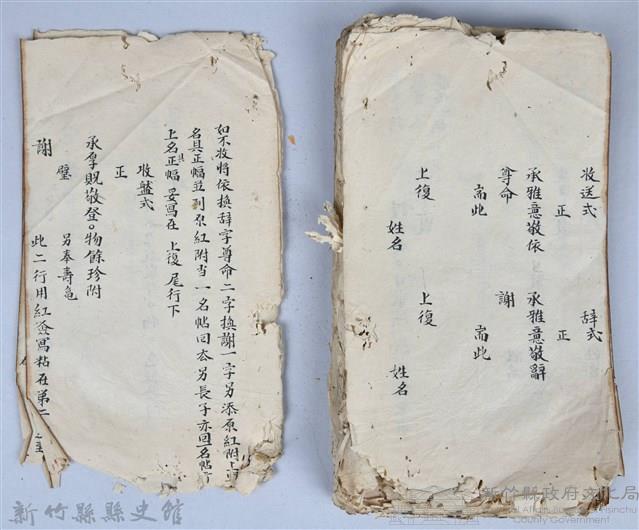 收送式　辞式
正　正
承雅意敬依　承雅意敬辭
尊命　謝
耑此　耑此
上復　上復
姓名　姓名
如不收將依換辞字尊命二字換謝一字另添原紅附上
名具正幅並列原紅附当一名帖回衣另長子亦回名帖
上名其正幅妥寫在 上復 尾行下
收盤式
正
承厚貺敬登〇物餘珍附
璧 另奉壽龜
謝 此二行用紅簽寫粘在第二
新竹縣縣史館
新竹縣政府文化局
Cultural Affairs Bureau, Hsinchu County Government